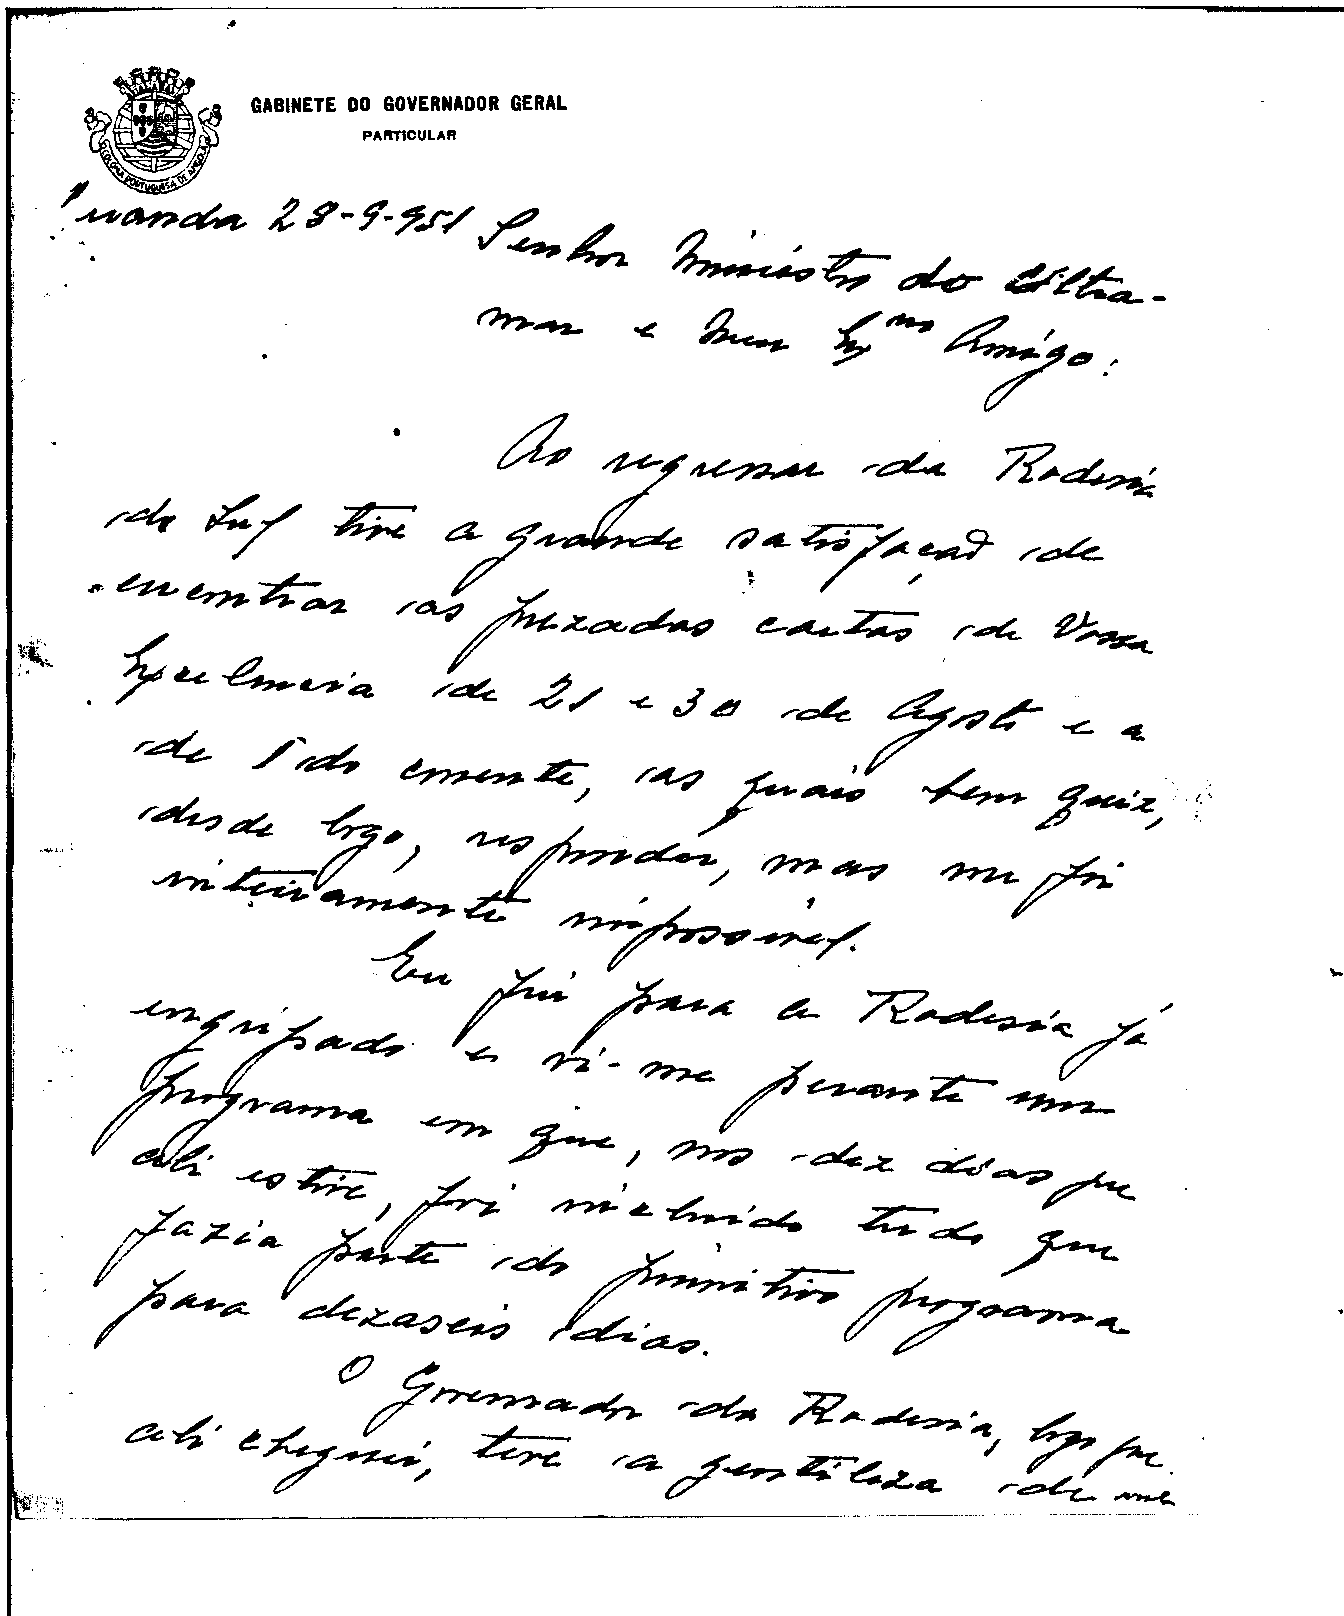 GABINETE DO GOVERNADOR GERAL
PARTICULAR
COLONIA PORTUGUESA DE ANGOLA
Luanda 28-9-951
Senhor Ministro do Ultra-
mar e meu Exmo Amigo:
Ao regressar da Rodesia
do Sul tive a grande satisfação de
encontrar as prezadas cartas de Vossa
Excelencia de 21 e 30 de Agosto e a
de do corrente, as quais bem quiz,
desde logo, responder, mas me foi
inteiramente impossivel.
Eu fui para a Rodesia já
engripado e vi-me perante um
programa em que, nos dez dias que
ali estive, foi incluido tudo que
fazia parte do primitivo programa
para dezaseis dias.
O Governador da Rodesia, logo que
ali cheguei, teve a gentileza de me